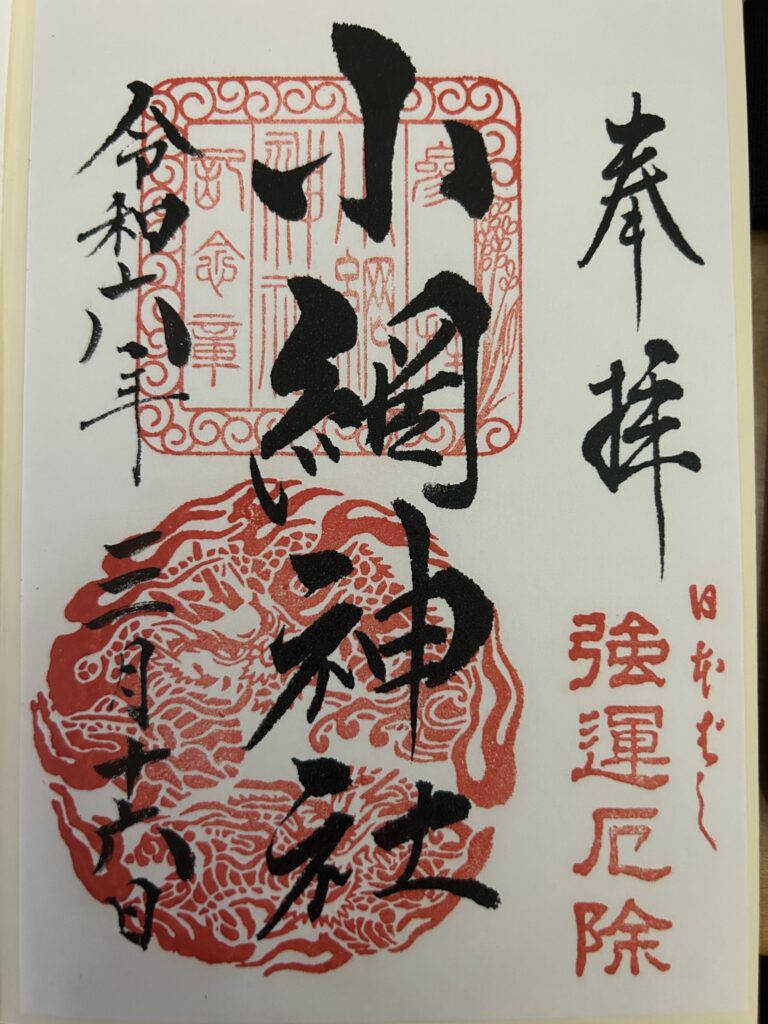 奉拝
日本ばし
強運厄除
小網神社
参拝
小網
神社
記念章
令和六年
三月十六日